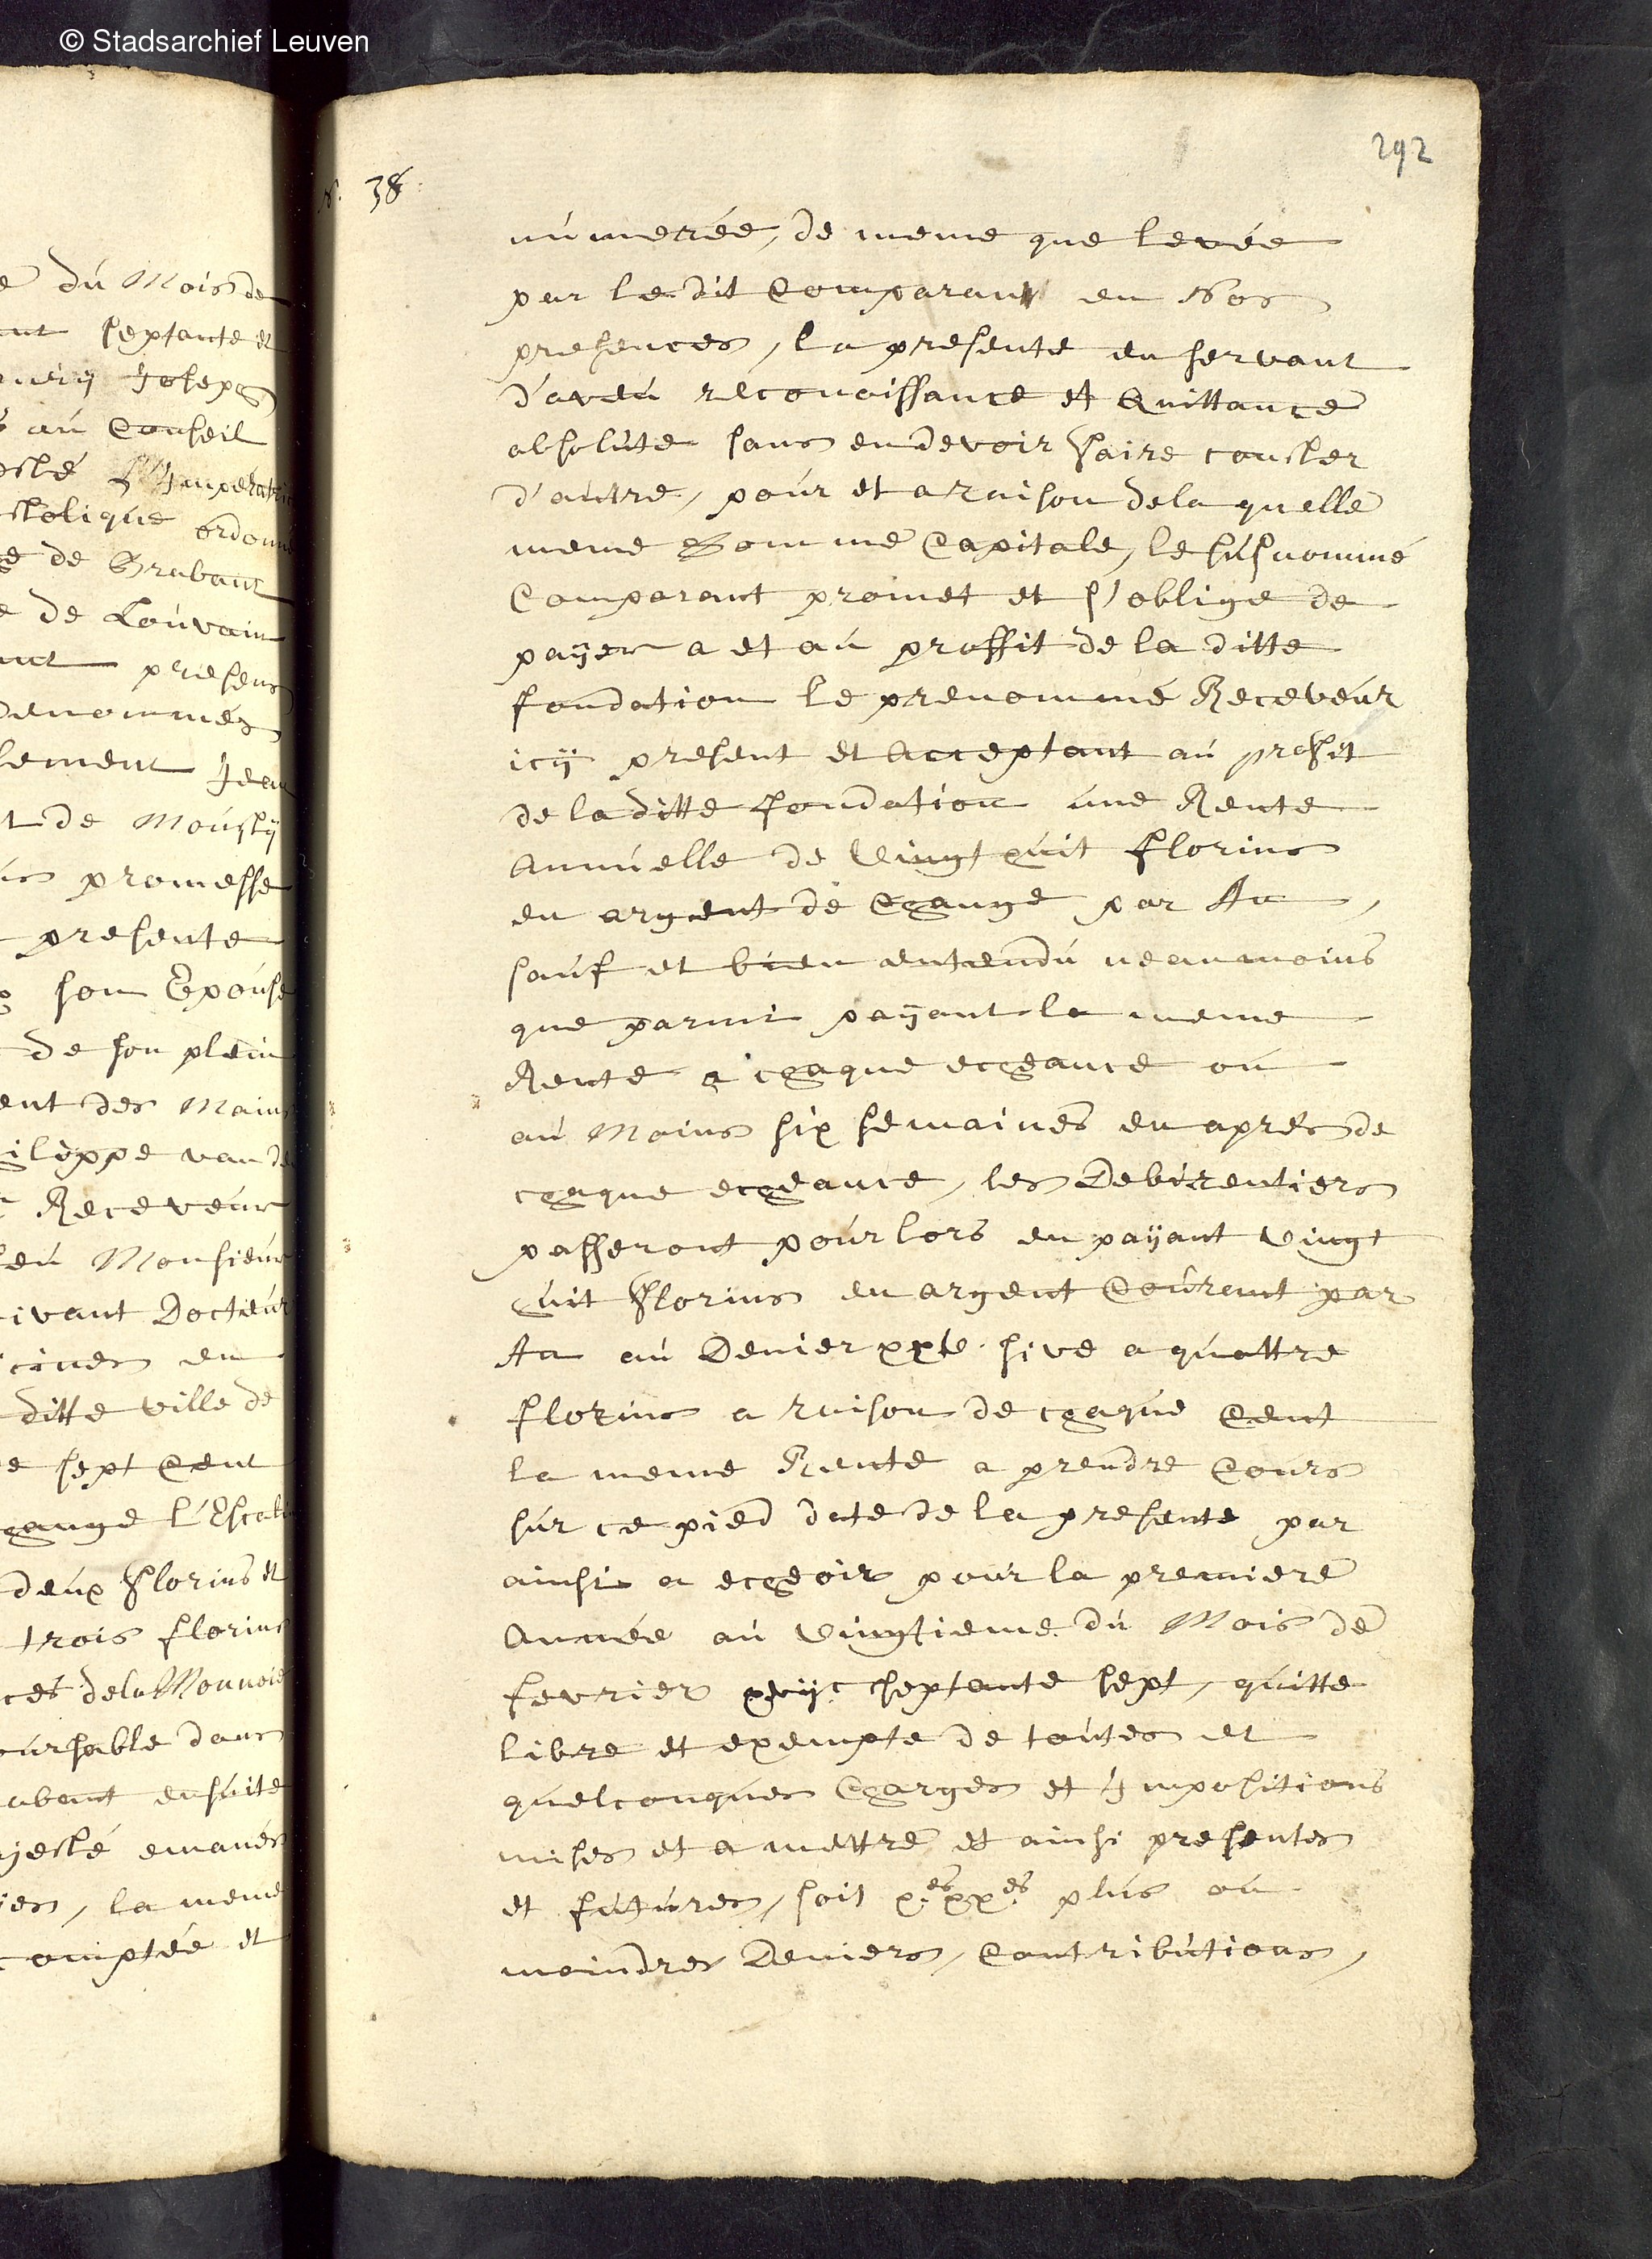 © Stadsarchief Leuven
292
N. 38
númerée, de meme que levée
par le dit Comparant en Nos
presences, la presente en servant
d'aveú reconoissance et Quittance
absolúte sans en devoir faire conster
d'aútre, poúr et a raison dela quelle
meme Somme Capitale, le súsnommé
Comparant promet et s'oblige de
paÿer a et aú proffit de la ditte
fondation le prenommé Receveúr
icÿ present et Acceptant aú profit
de la ditte fondation úne Rente
Annúelle de Vingt húit florins
en argent de Change par An,
saúf et bien entendú neanmoins
que parmi paÿant la meme
Rente a chaque echeance oú
aú Moins six semaines en aprés de
chaque echeance, les Debirentiers
passeront poúr lors en paÿant Vingt
húit florins en argent Coúrant par
An aú Denier xxve sive a quattre
florins a raison de chaqúe Cent
la meme Rente a prendre Cours
súr ce pied date de la presente par
ainsi a echeoir poúr la premiere
Année aú Vingtieme dú Mois de
fevrier xvijc septante sept, qúitte
libre et exempte de toútes et
quelconques Charges et Impositions
mises et a mettre et ainsi presentes
et fútúres, soit x.es xx.es plús oú
moindres Deniers, Contribútions,
dú Mois de
septante et
Joseph
aú Conseil
ordonné
de Brabant
de Loúvain
presens
denommés
Jean
de Moústÿ
promesse
presente
son Epoúse
de son plein
des Mains
Receveúr
feú Monsieúr
vivant Docteúr
en
ditte ville de
sept Cent
L'Escalin
deúx florins et
trois florins
dela Monnoie
dans
ensúite
emanés
la meme
comptée et